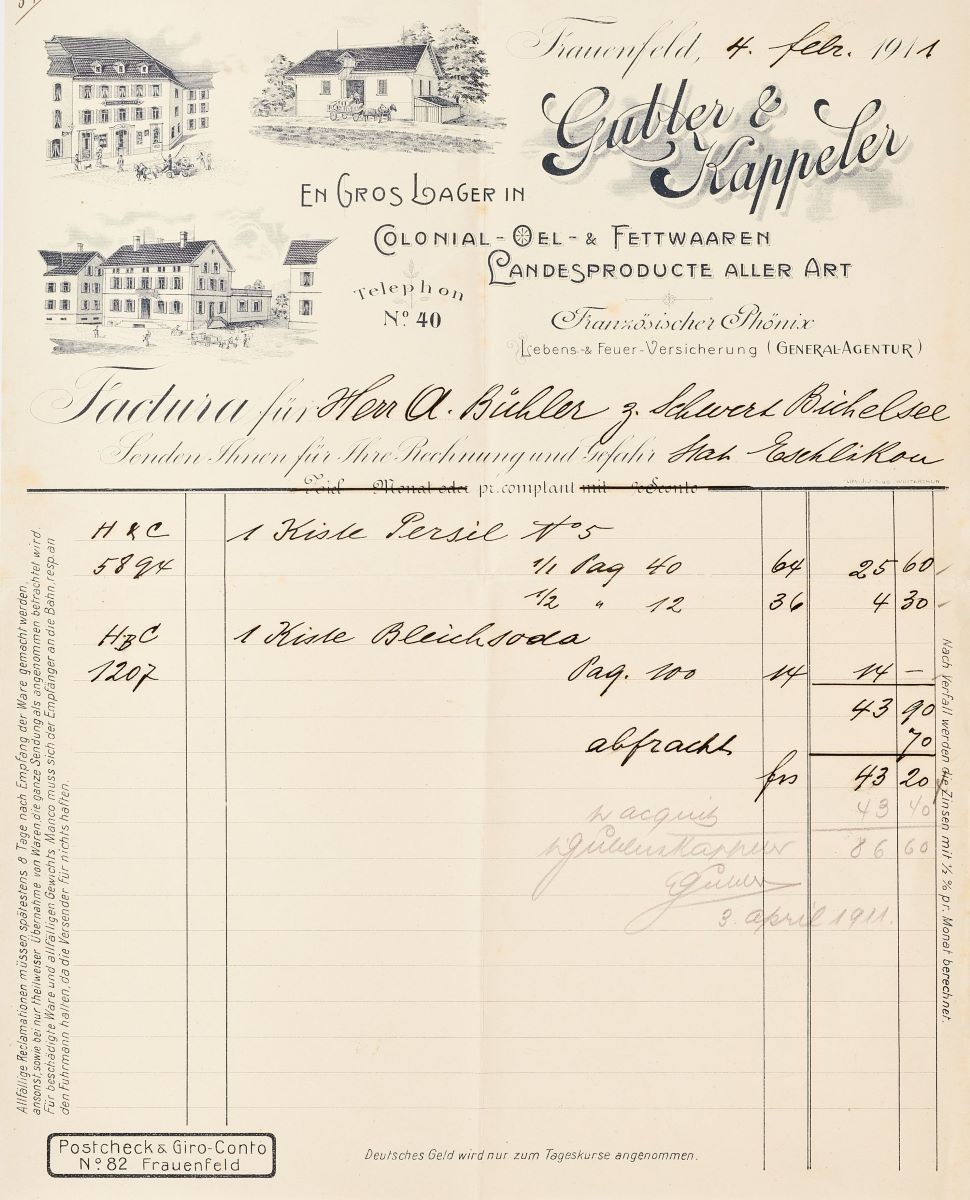 Frauenfeld, 4. febr. 1911
Gubler & Kappeler
En Gros Lager in
Colonial-Oel-& Fettwaaren
Landesproducte aller Art
Telephon
No. 40
Französischer Phönix
Lebens-& Feuer-Versicherung (General-Agentur)
Factura für Herr A. Bühler z. Schwert Bichelsee
Senden Ihnen für Ihre Rechnung und Gefahr Stat. Eschlikon
Ziel Monat oder pr. comptant mit % Sconto
H & C 1 Kiste Persil No 5
5894 1/1 Paq 40 64 25 60
1/2 " 12 36 4 30
HBC 1 Kiste Bleichsoda
1207 Paq. 100 14 14 —
43 90
abfracht 70
frs 43 20
p acquit 43 40
p Gubler & Kappeler 86 60
Gubler
3. april 1911.
Allfällige Reclamationen müssen spätestens 8 Tage nach Empfang der Ware gemacht werden,
ansonst, sowie bei nur theilweiser Übernahme von Waren, die ganze Sendung als angenommen betrachtet wird.
Für beschädigte Ware und allfälligen Gewichts Manco muss sich der Empfänger an die Bahn, resp. an
den Fuhrmann halten, da die Versender für nichts haften.
Nach Verfall werden die Zinsen mit 1/2 % pr. Monat berechnet.
Postcheck & Giro-Conto
No. 82 Frauenfeld
Deutsches Geld wird nur zum Tageskurse angenommen.